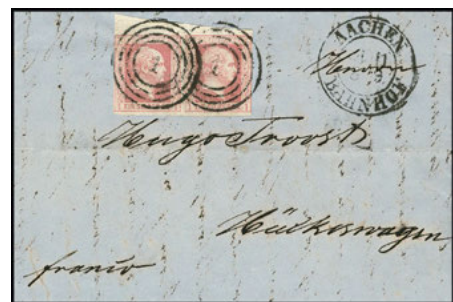 AACHEN
BAHNHOF
Herrn
Hugo Troost
Hückeswagen
franco